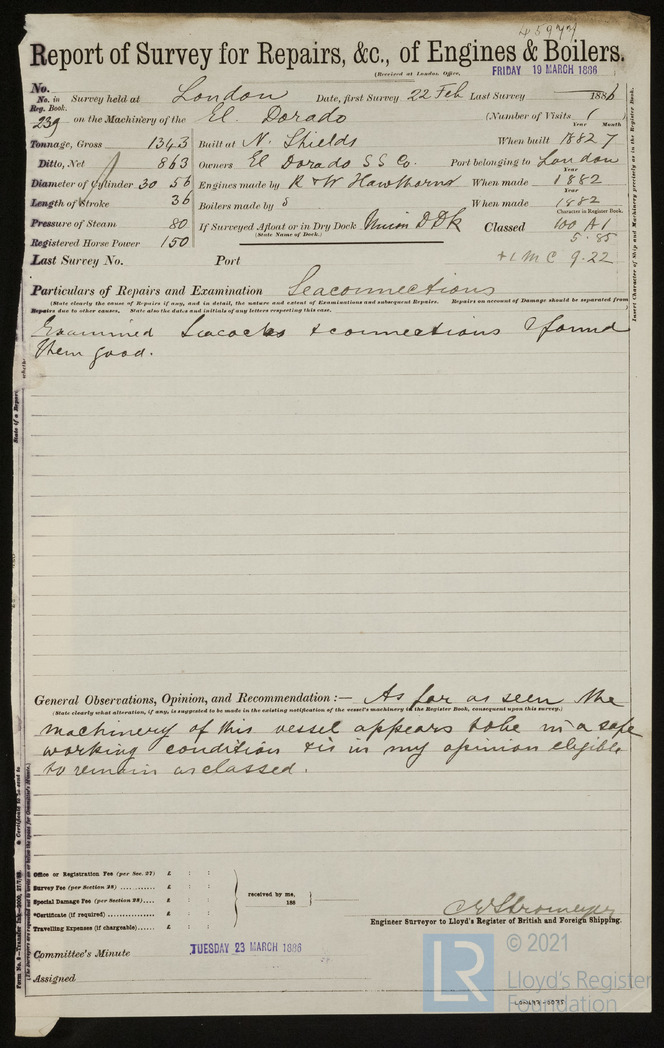 45977
Report of Survey for Repairs, &c., of Engines & Boilers.
(Received at London Office, FRIDAY 19 MARCH 1886
No.
No. in Reg. Book. Survey held at London Date, first Survey 22 Feb Last Survey 1886
239 on the Machinery of the El Dorado (Number of Visits 1)
Year Month
Tonnage, Gross 1343 Built at N. Shields When built 1882 7
Ditto, Net 863 Owners El Dorado S S Co. Port belonging to London
Year
Diameter of Cylinder 30 56 Engines made by R & W Hawthorns When made 1882
Year
Length of Stroke 36 Boilers made by When made 1882
Character in Register Book.
Pressure of Steam 80 If Surveyed Afloat or in Dry Dock Union D Dk Classed 100 A1
(State Name of Dock.) 5.85
Registered Horse Power 150
Last Survey No. Port + L M C 9.22
Particulars of Repairs and Examination Seaconnections
(State clearly the cause of Repairs if any, and in detail, the nature and extent of Examinations and subsequent Repairs. Repairs on account of Damage should be separated from
Repairs due to other causes. State also the dates and initials of any letters respecting this case.
Examined Seacocks & connections & found
them good.
Insert Character of Ship and Machinery precisely as in the Register Book.
State if a Report
whether
General Observations, Opinion, and Recommendation :— As far as seen the
(State clearly what alteration, if any, is suggested to be made in the existing notification of the vessel's machinery in the Register Book, consequent upon this survey.)
machinery of this vessel appears to be in a safe
working condition & is in my opinion eligible
to remain as classed.
Office or Registration Fee (per Sec. 27) £ : :
Survey Fee (per Section 28) £ : :
Special Damage Fee (per Section 28) £ : :
*Certificate (if required) £ : :
Travelling Expenses (if chargeable) £ : :
received by me,
188
C E Stromeyer
Engineer Surveyor to Lloyd's Register of British and Foreign Shipping.
Committee's Minute TUESDAY 23 MARCH 1886
Assigned
LR © 2021
Lloyd's Register
Foundation